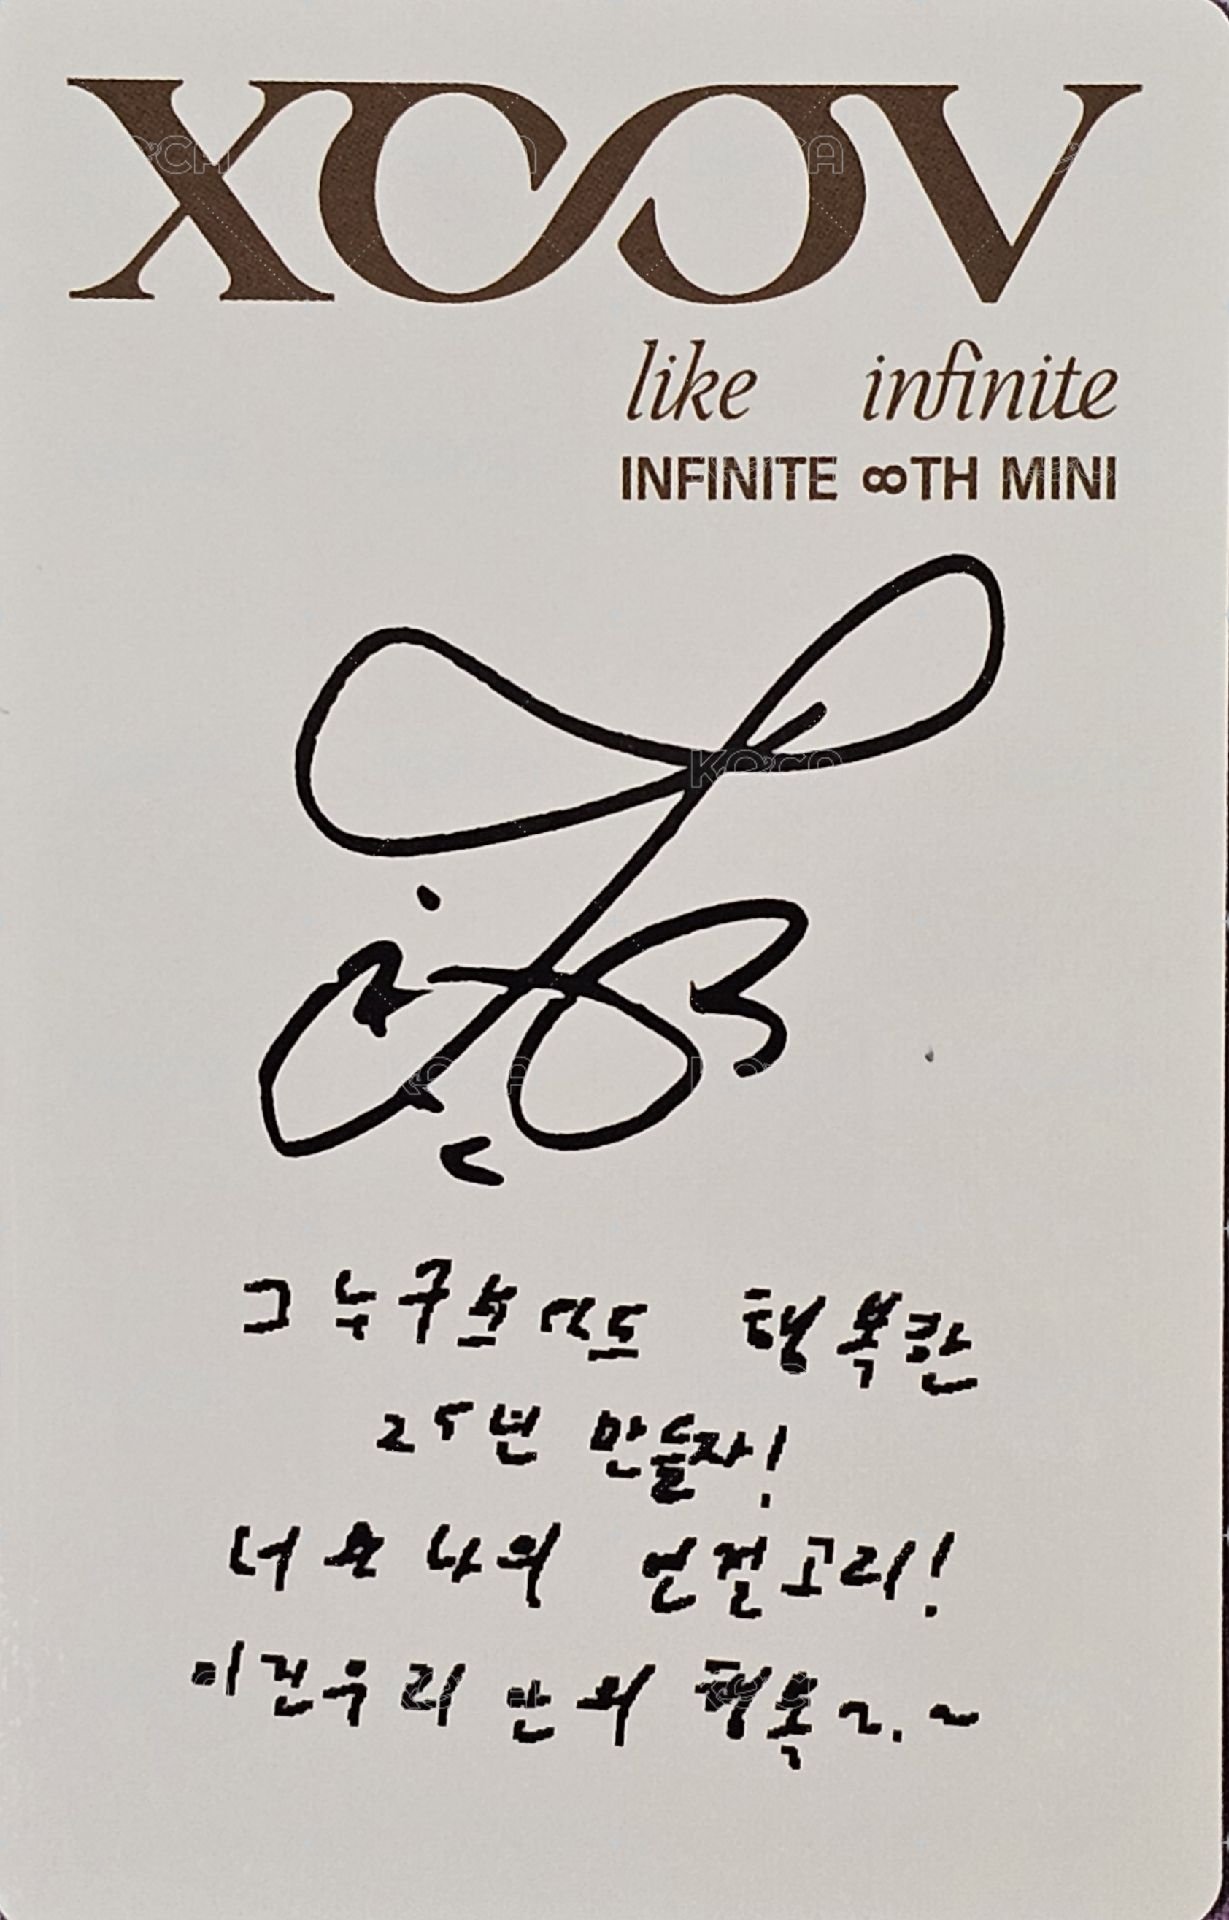 like infinite
INFINITE ∞TH MINI
그 누구보다도 행복한
25년 만들자!
너와 나의 연결고리!
이건 우리 안의 행복~.~
KCA